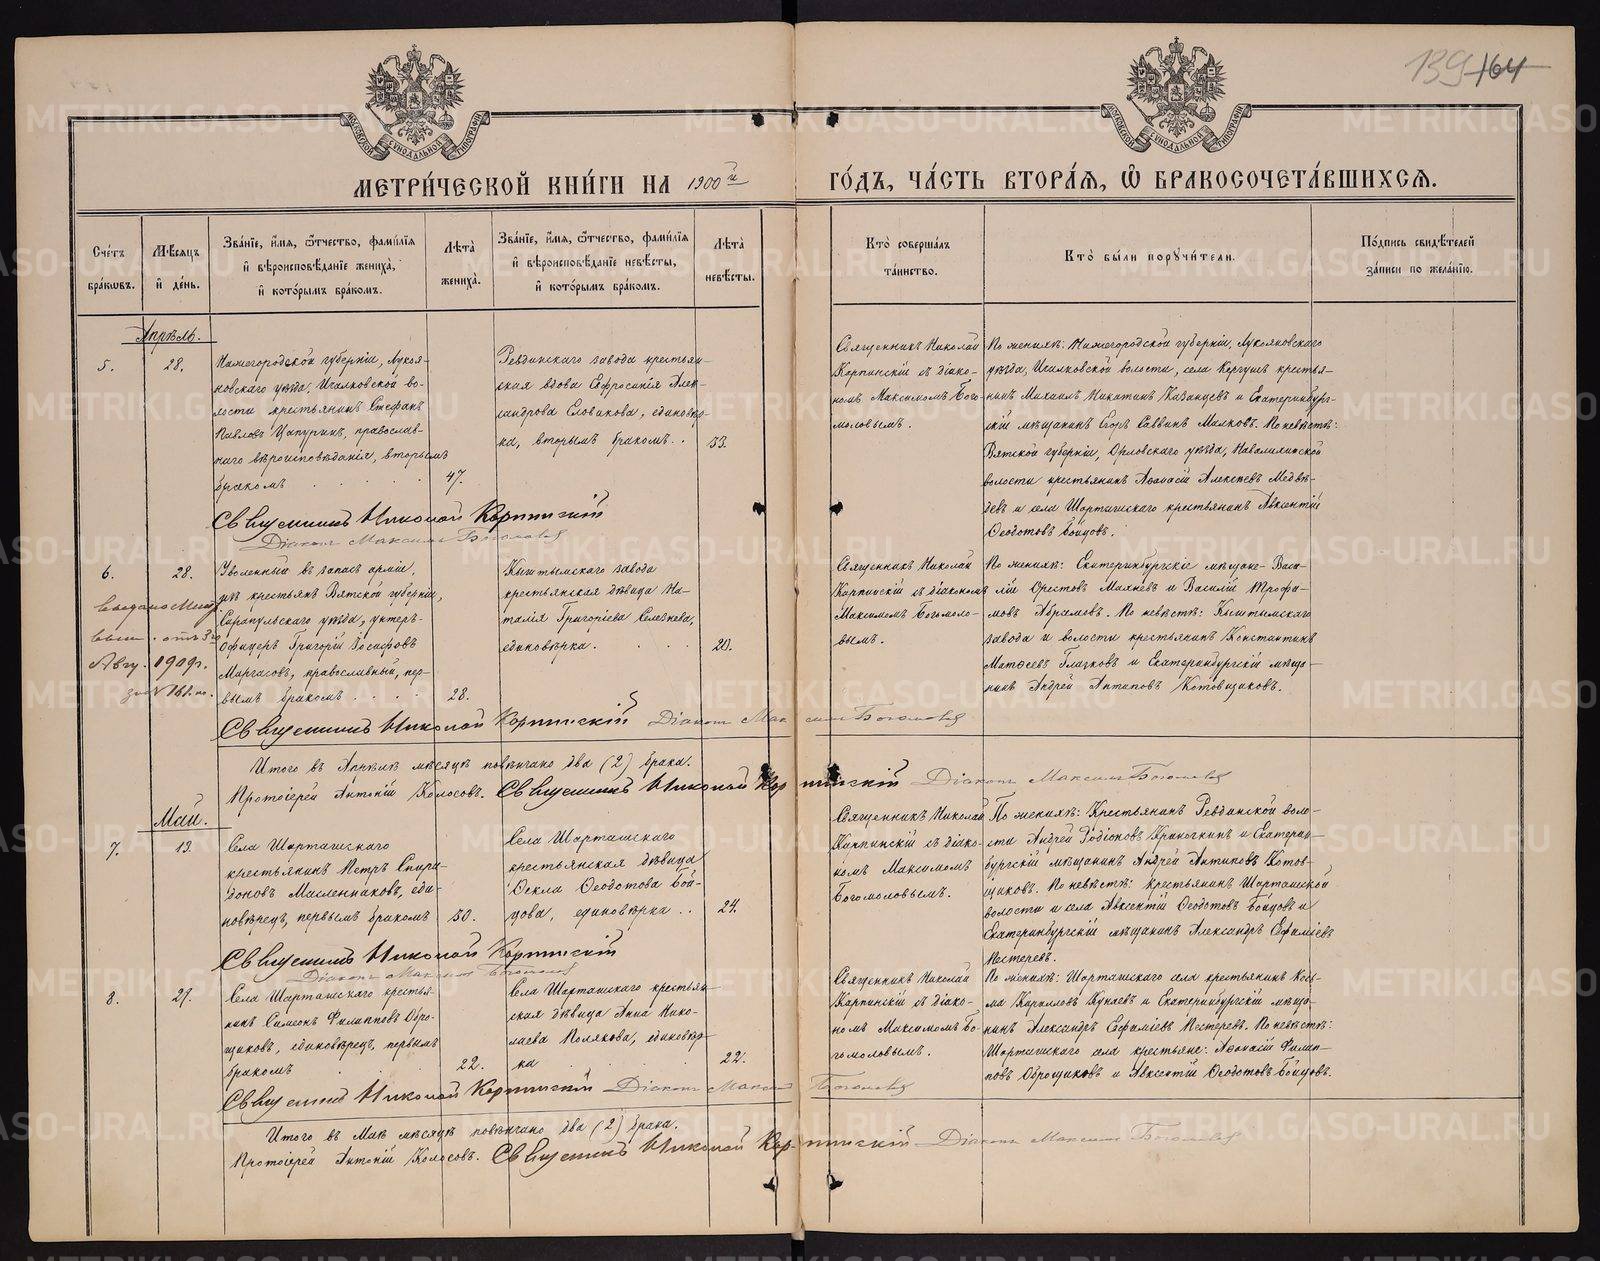 139 164
МОСКОВСКОЙ СѴНОДАЛЬНОЙ ТИПОГРАФІИ
МОСКОВСКОЙ СѴНОДАЛЬНОЙ ТИПОГРАФІИ
МЕТРИ́ЧЕСКОЙ КНИ́ГИ НА 1900й
ГО́ДЪ, ЧА́СТЬ ВТОРА́Ѧ, Ѽ БРАКОСОЧЕТА́ВШИХСѦ.
Сче́тъ
бра́кѡвъ.
Мѣ́сѧцъ
и҆ де́нь.
Зва́нїе, и҆́мѧ, ѻ҆́тчество, фамилїѧ
и҆ вѣроисповѣ́данїе жениха̀,
и҆ кото́рымъ бра́комъ.
Лѣ́та
жениха̀.
Зва́нїе, и҆́мѧ, ѻ҆́тчество, фамилїѧ
и҆ вѣроисповѣ́данїе невѣ́сты,
и҆ кото́рымъ бра́комъ.
Лѣ́та
невѣ́сты.
Кто̀ соверша́лъ
та́инство.
Кто̀ бы́ли порꙋчи́тели.
По́дпись свидѣ́телей
за́писи по жела́нїю.
Апрѣль.
5.
28.
Нижегородской губерніи, Лукоя-
новскаго уѣзда, Ичалковской во-
лости крестьянинъ Стефанъ
Павловъ Цапуринъ, православ-
наго вѣроисповѣданія, вторымъ
бракомъ
47.
Ревдинскаго завода крестьян-
ская вдова Евфросинія Алек-
сандрова Еловикова, единовѣр-
ка, вторымъ бракомъ..
33.
Священникъ Николай
Карпинскій съ діако-
номъ Максимомъ Бого-
моловымъ.
По женихѣ: Нижегородской губерніи, Лукояновскаго
уѣзда, Ичалковской волости, села Кергушъ крестья-
нинъ Михаилъ Никитинъ Казанцевъ и Екатеринбург-
скій мѣщанинъ Егоръ Саввинъ Малковъ. По невѣстѣ:
Вятской губерніи, Орловскаго уѣзда,
волости крестьянинъ Аѳанасій Алексѣевъ Медвѣ-
девъ и села Шарташскаго крестьянинъ Авксентій
Ѳеодотовъ Бойцовъ.
Священникъ Николай Карпинскій
Діаконъ Максимъ Богомоловъ
6.
28.
Выдано Мет.
вып. отъ 3го
Авгу. 1909г.
за № 161. по.
Уволенный въ запасъ арміи,
изъ крестьянъ Вятской губерніи,
Сарапульскаго уѣзда, унтеръ-
офицеръ Григорій Іосифовъ
Миргасовъ, православный, пер-
вымъ бракомъ
28.
Кыштымскаго завода
крестьянская дѣвица На-
талія Григоріева Селезнева,
единовѣрка.
20.
Священникъ Николай
Карпинскій съ діакономъ
Максимомъ Богомоло-
вымъ.
По женихѣ: Екатеринбургскіе мѣщане Васи-
лій Орестовъ Махневъ и Василій Трофи-
мовъ Абрамовъ. По невѣстѣ: Кыштымскаго
завода и волости крестьянинъ Константинъ
Матѳеевъ Глазковъ и Екатеринбургскій мѣща-
нинъ Андрей Антиповъ Котовщиковъ.
Священникъ Николай Карпинскій Діаконъ Максимъ Богомоловъ
Итого въ Апрѣлѣ мѣсяцѣ повѣнчано два (2) брака.
Протоіерей Антоній Колосовъ. Священникъ Николай Карпинскій Діаконъ Максимъ Богомоловъ
Май.
7.
13.
Села Шарташскаго
крестьянинъ Петръ Спири-
доновъ Масленниковъ, еди-
новѣрецъ, первымъ бракомъ
30.
Села Шарташскаго
крестьянская дѣвица
Ѳекла Ѳеодотова Бой-
цова, единовѣрка..
24.
Священникъ Николай
Карпинскій съ діако-
номъ Максимомъ
Богомоловымъ.
По женихѣ: Крестьянинъ Ревдинской воло-
сти Андрей Родіоновъ и Екатерин-
бургскій мѣщанинъ Андрей Антиповъ Котов-
щиковъ. По невѣстѣ: крестьянинъ Шарташской
волости и села Авксентій Ѳеодотовъ Бойцовъ и
Екатеринбургскій мѣщанинъ Александръ Евфиміевъ
Нестеревъ.
Священникъ Николай Карпинскій
Діаконъ Максимъ Богомоловъ
8.
27.
Села Шарташскаго крестья-
нинъ Симеонъ Филипповъ Обро-
щиковъ, единовѣрецъ, первымъ
бракомъ
22.
Села Шарташскаго крестьян-
ская дѣвица Анна Нико-
лаева Полякова, единовѣр-
ка
22.
Священникъ Николай
Карпинскій съ діако-
номъ Максимомъ Бо-
гомоловымъ.
По женихѣ: Шарташскаго села крестьянинъ Кось-
ма Карпловъ Кунаевъ и Екатеринбургскій мѣща-
нинъ Александръ Евфиміевъ Нестеревъ. По невѣстѣ:
Шарташскаго села крестьяне: Аѳанасій Филип-
повъ Оброщиковъ и Авксентій Ѳеодотовъ Бойцовъ.
Священникъ Николай Карпинскій Діаконъ Максимъ Богомоловъ
Итого въ Маѣ мѣсяцѣ повѣнчано два (2) брака.
Протоіерей Антоній Колосовъ. Священникъ Николай Карпинскій Діаконъ Максимъ Богомоловъ
METRIKI.GASO-URAL.RU